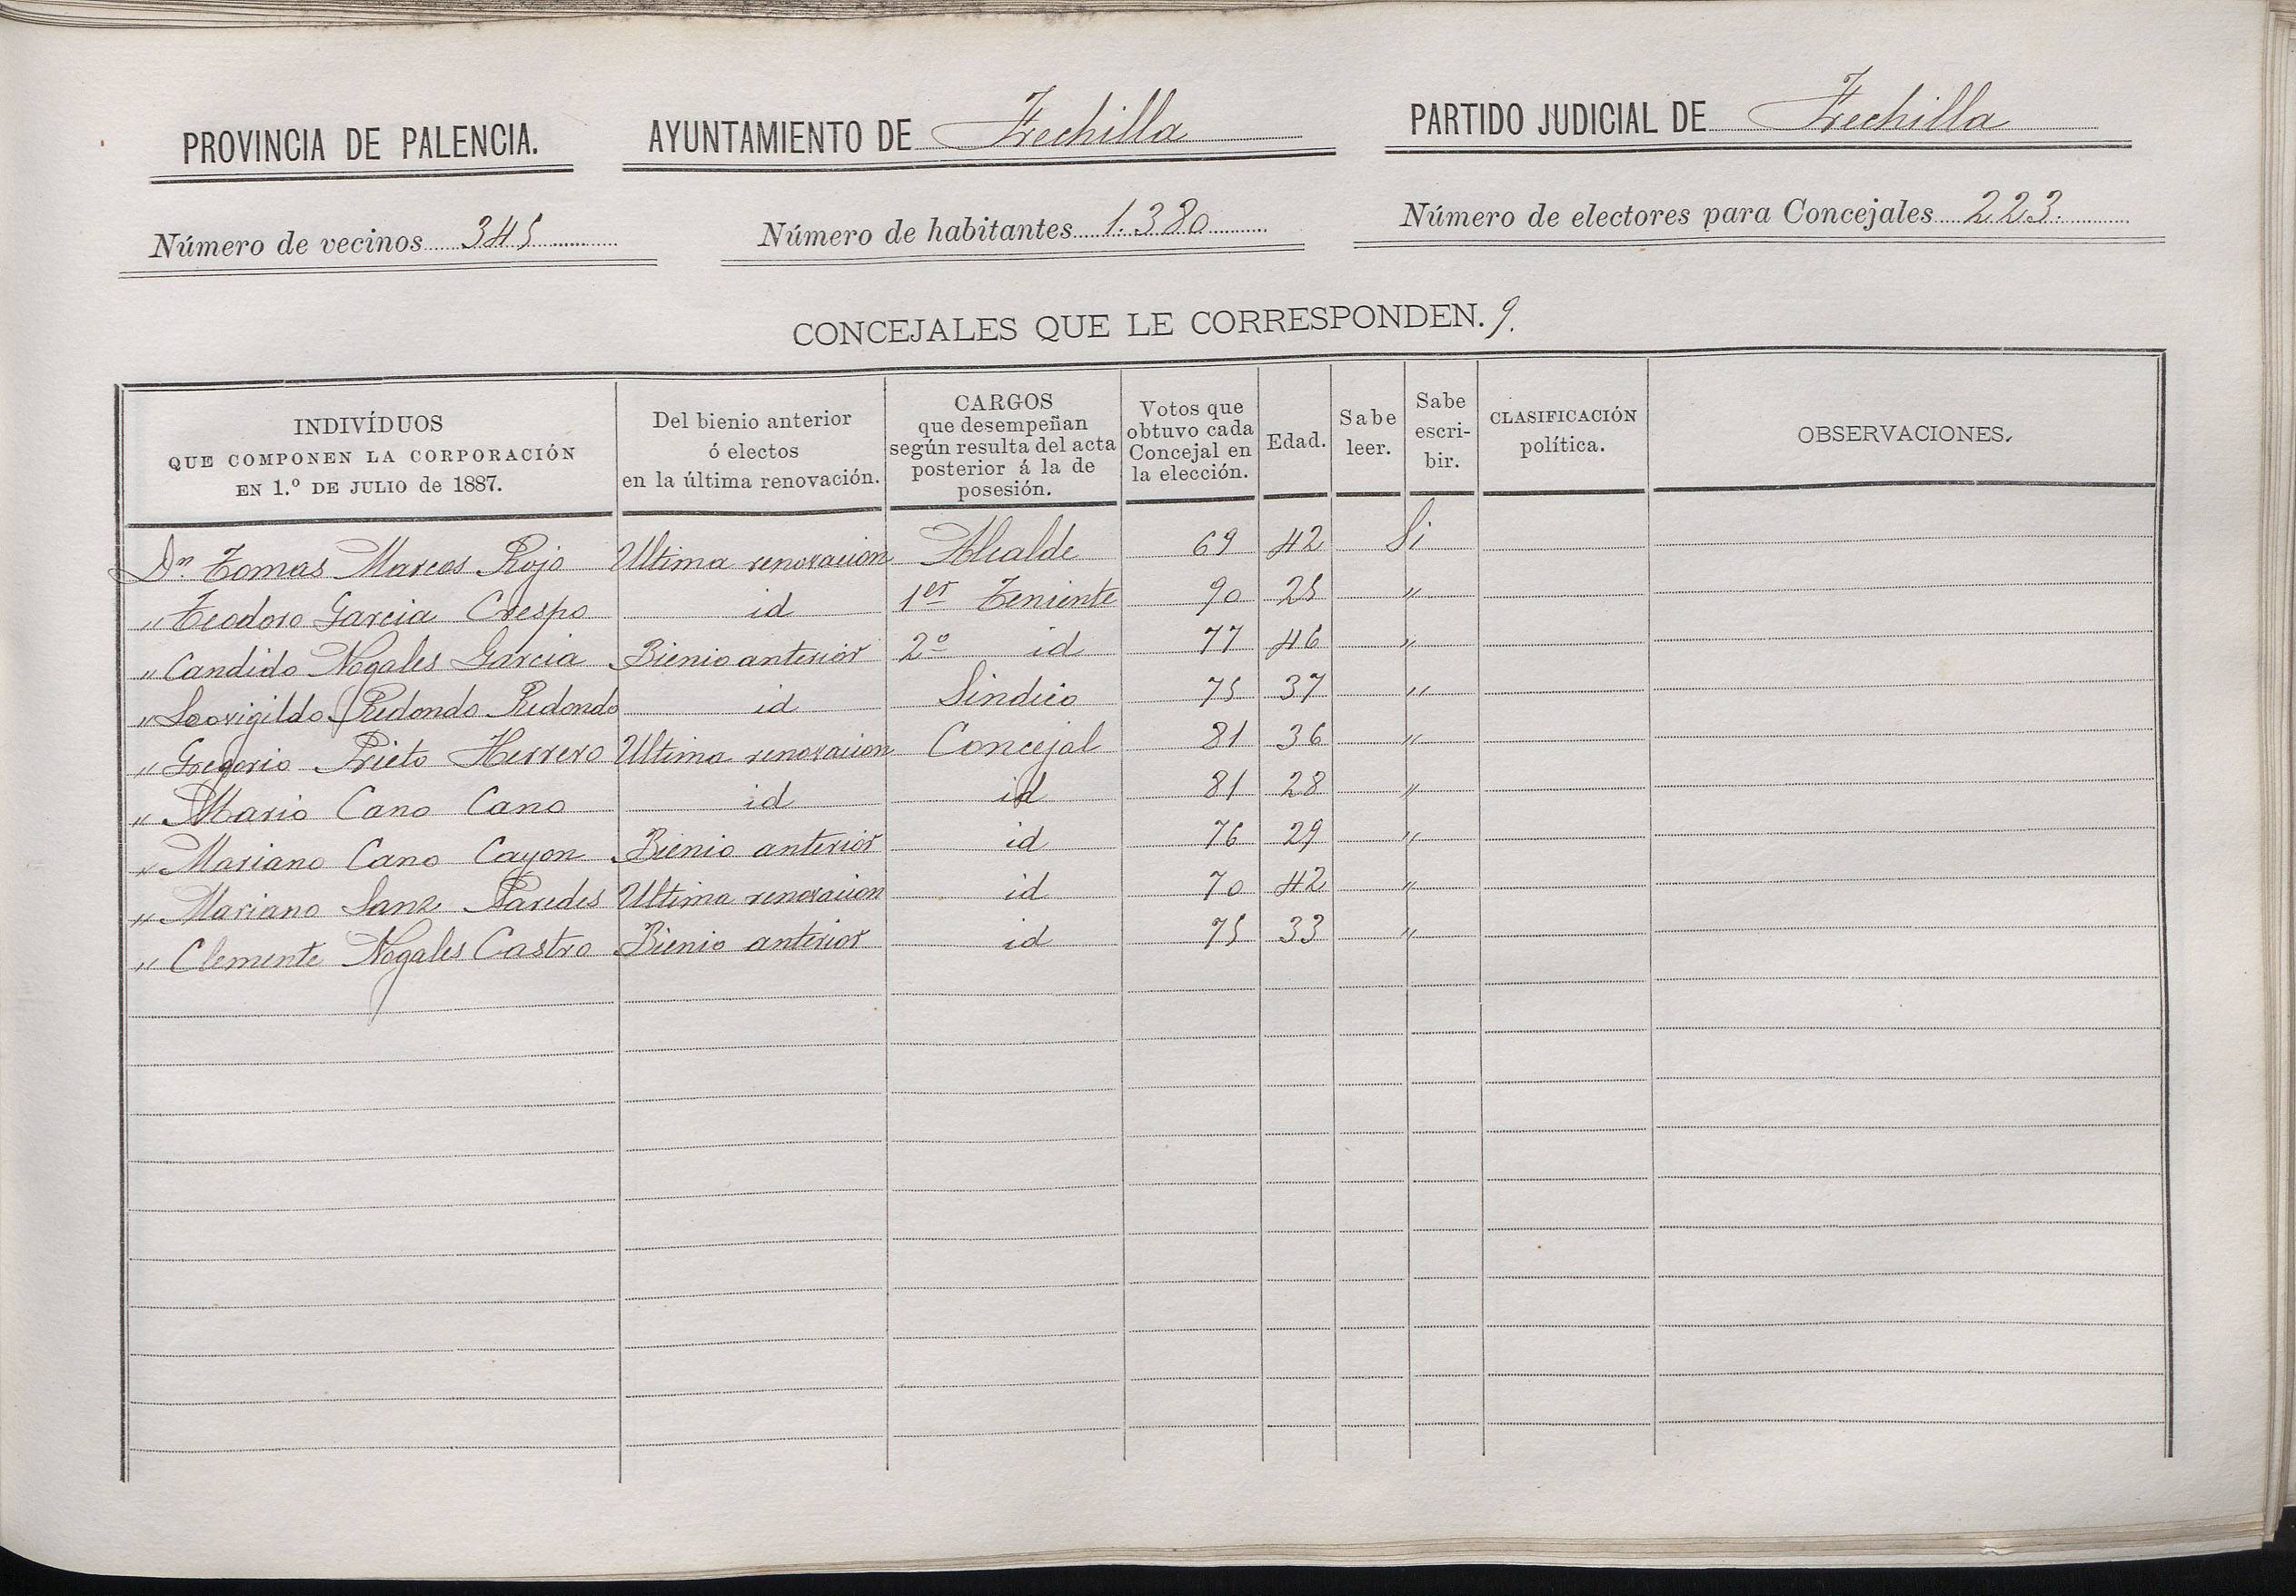 PROVINCIA DE PALENCIA. AYUNTAMIENTO DE Frechilla PARTIDO JUDICIAL DE Frechilla
Número de vecinos 345 Número de habitantes 1.380 Número de electores para Concejales 223.
CONCEJALES QUE LE CORRESPONDEN. 9.
INDIVÍDUOS
QUE COMPONEN LA CORPORACIÓN
EN 1.º DE JULIO de 1887.
Del bienio anterior
ó electos
en la última renovación.
CARGOS
que desempeñan
según resulta del acta
posterior á la de
posesión.
Votos que
obtuvo cada
Concejal en
la elección.
Edad.
Sabe
leer.
Sabe
escri-
bir.
CLASIFICACIÓN
política.
OBSERVACIONES.
Dn. Tomas Marcos Rojo Ultima renovacion Alcalde 69 42 Si
" Teodoro Garcia Crespo id 1er Teniente 90 25 "
" Candido Nogales Garcia Bienio anterior 2º id 77 46 "
" Leovigildo Redondo Redondo id Sindico 75 37 "
" Gregorio Prieto Herrero Ultima renovacion Concejal 81 36 "
" Mario Cano Cano id id 81 28 "
" Mariano Cano Cayon Bienio anterior id 76 29 "
" Mariano Sanz Paredes Ultima renovacion id 70 42 "
" Clemente Nogales Castro Bienio anterior id 75 33 "